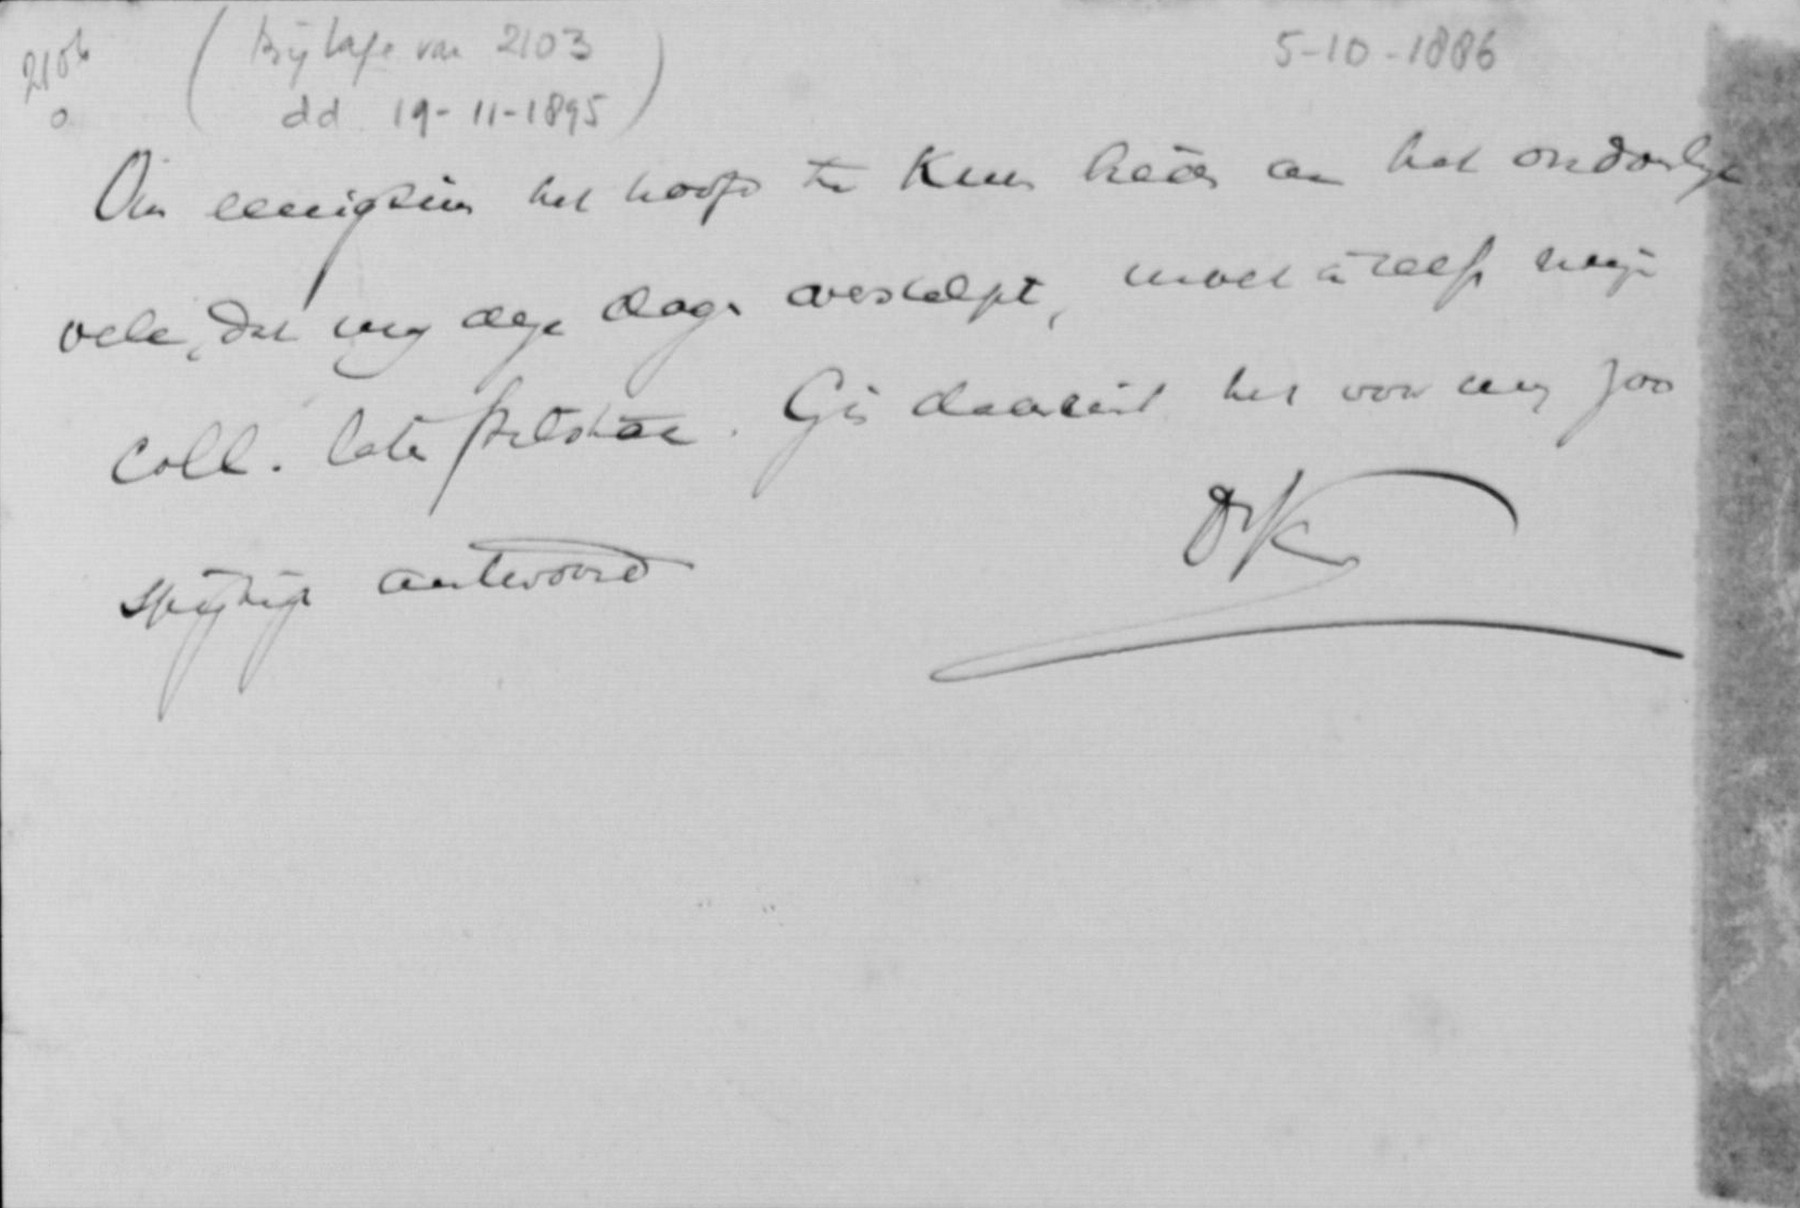 2106
a
(Bijlage van 2103
dd 19-11-1895)
5-10-1886
Om eenigszins het hoofd te kunn bieden aan het ondankb
vele, dat mij deze dage overstelpt, moet ik zelfs mijn
coll. laten stilstaan. Gis daaruit het voor mij zoo
spijtige antwoord
DrK